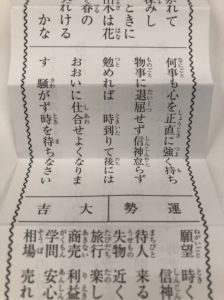 れて
みし
ときに
山木は花
春の
れける
かな
何事も心を正直に強く持ち
物事に退屈せず信神怠らず
勉めれば 時到りて後には
おおいに仕合せよくなりま
す 騒がず時を待ちなさい
運勢 大吉
願望 時
信神
待人 来る
失物 近く
旅行 楽
商売 利益
学問 安心
相場 売れ